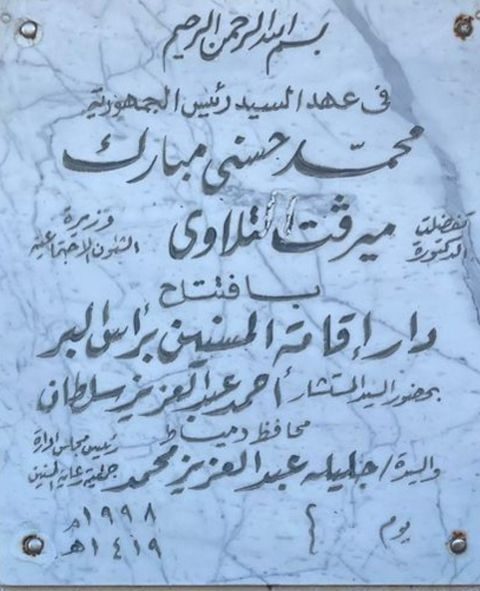 بسم الله الرحمن الرحيم
فى عهد السيد رئيس الجمهورية
محمد حسنى مبارك
تفضلت الدكتورة ميرڤت التلاوى وزيرة الشئون الاجتماعية
بافتتاح
دار إقامة المسنين برأس البر
بحضور السيد المستشار أحمد عبد العزيز سلطان
محافظ دمياط
والسيدة / جليله عبد العزيز محمد رئيس مجلس إدارة جمعية رعاية المسنين
يوم / / ١٩٩٨م
١٤١٩هـ